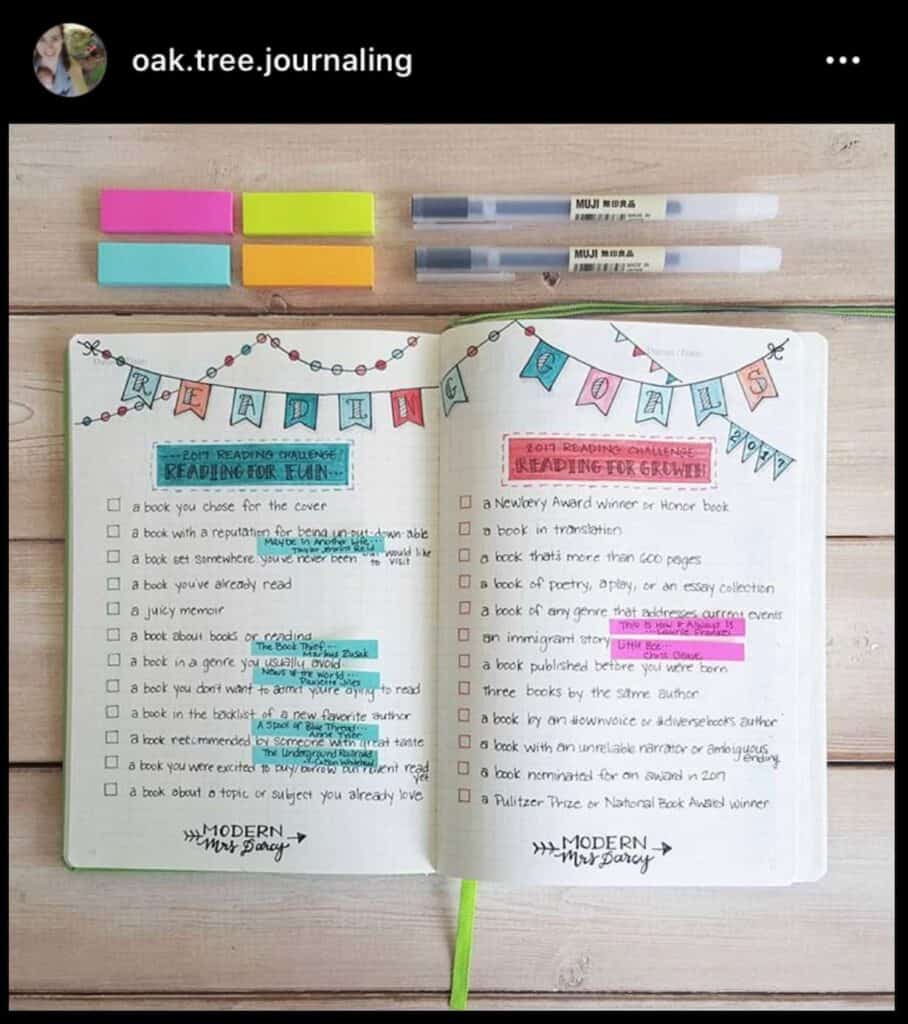 oak.tree.journaling
MUJI 無印良品
MADE IN
MUJI 無印良品
MADE IN
JAPAN
READING GOALS
2017
2017 READING CHALLENGE
READING FOR FUN
a book you chose for the cover
a book with a reputation for being un-put-down-able
Maybe in Another Life...
Taylor Jenkins Reid
a book set somewhere you've never been but would like
to visit
a book you've already read
a juicy memoir
a book about books or reading
The Book Thief...
Markus Zusak
a book in a genre you usually avoid
News of the World...
Paulette Jiles
a book you don't want to admit you're dying to read
a book in the backlist of a new favorite author
A Spool of Blue Thread...
Anne Tyler
a book recommended by someone with great taste
The Underground Railroad
Colson Whitehead
a book you were excited to buy/borrow but haven't read
yet
a book about a topic or subject you already love
MODERN
Mrs Darcy
2017 READING CHALLENGE
READING FOR GROWTH
a Newbery Award winner or Honor book
a book in translation
a book that's more than 600 pages
a book of poetry, a play, or an essay collection
a book of any genre that addresses current events
This Is How It Always Is
...Laurie Frankel
an immigrant story
Little Bee...
Chris Cleave
a book published before you were born
three books by the same author
a book by an #ownvoice or #diversebooks author
a book with an unreliable narrator or ambiguous
ending
a book nominated for an award in 2017
a Pulitzer Prize or National Book Award winner
MODERN
Mrs Darcy